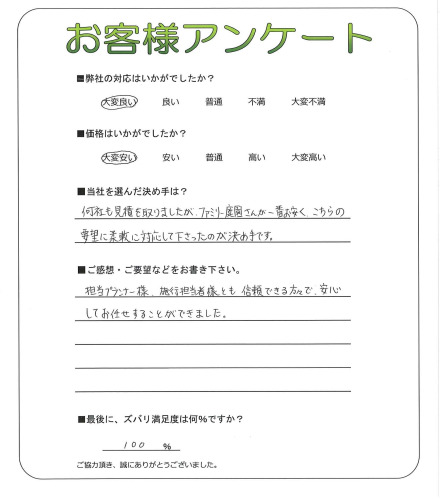 お客様アンケート
■弊社の対応はいかがでしたか？
大変良い　良い　普通　不満　大変不満
■価格はいかがでしたか？
大変安い　安い　普通　高い　大変高い
■当社を選んだ決め手は？
何社も見積を取りましたが、ファミリー庭園さんが一番お安く、こちらの
要望に柔軟に対応して下さったのが決め手です。
■ご感想・ご要望などをお書き下さい。
担当プランナー様、施行担当者様とも信頼できる方々で、安心
してお任せすることができました。
■最後に、ズバリ満足度は何%ですか？
100 %
ご協力頂き、誠にありがとうございました。